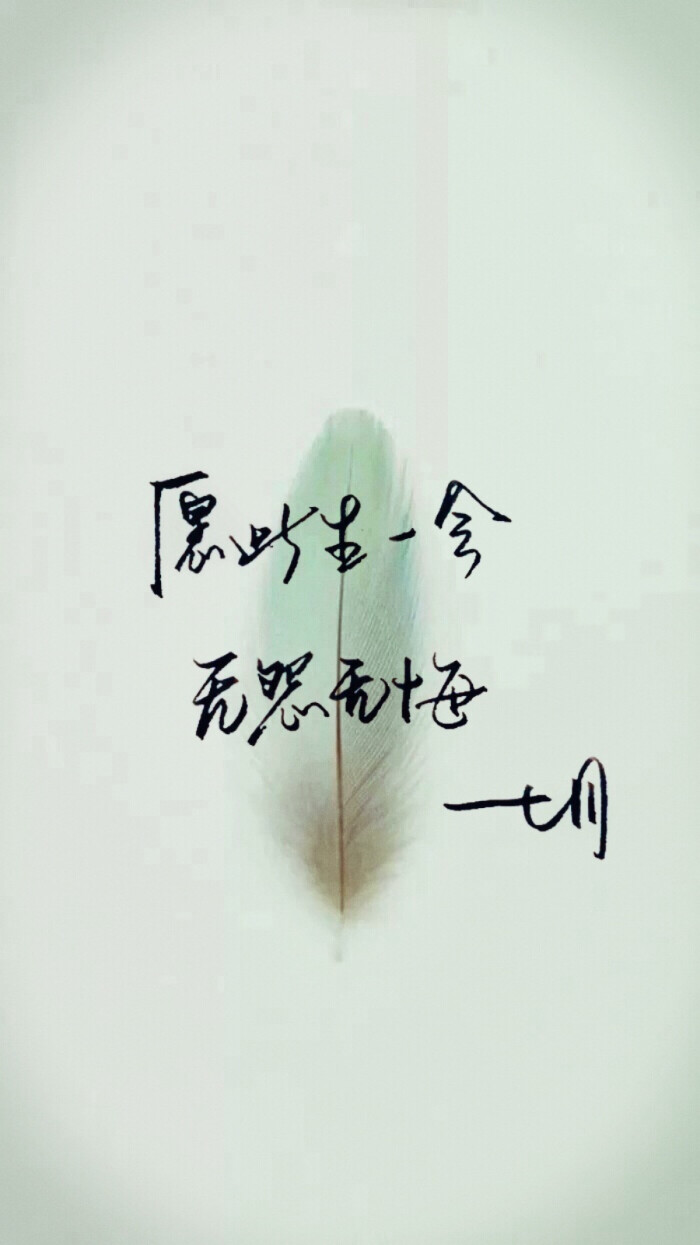 愿此生一会
无怨无悔
一七川